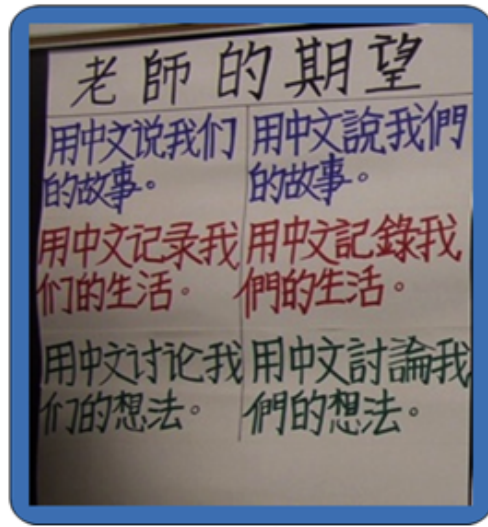 老師的期望
用中文说我们
的故事。
用中文記录我
们的生活。
用中文讨论我
们的想法。
用中文說我們
的故事。
用中文記錄我
們的生活。
用中文討論我
們的想法。